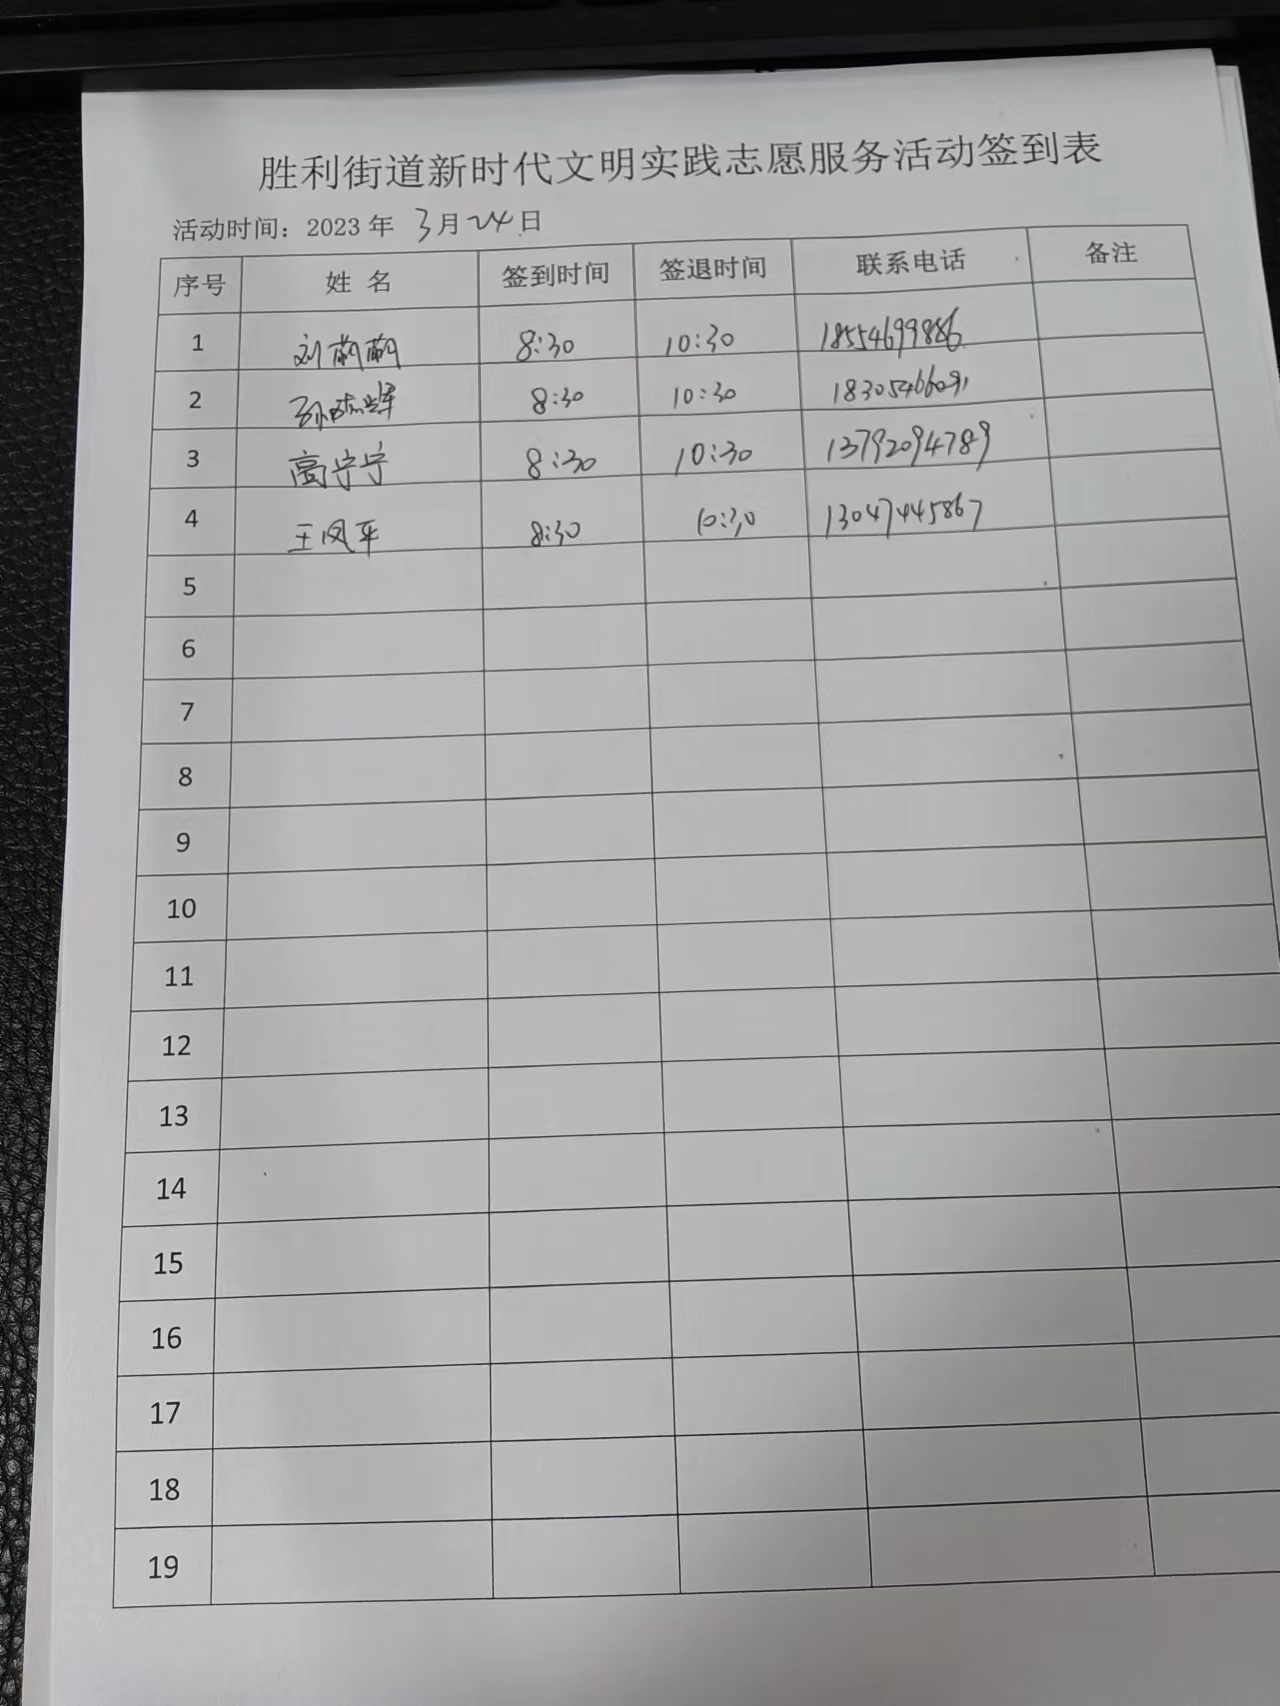 胜利街道新时代文明实践志愿服务活动签到表
活动时间：2023 年 3月24日
序号 姓 名 签到时间 签退时间 联系电话 备注
1 刘萌萌 8:30 10:30 18554699886
2 8:30 10:30 18305466091
3 高宁宁 8:30 10:30 13792094789
4 王凤平 8:30 10:30 13047445867
5
6
7
8
9
10
11
12
13
14
15
16
17
18
19